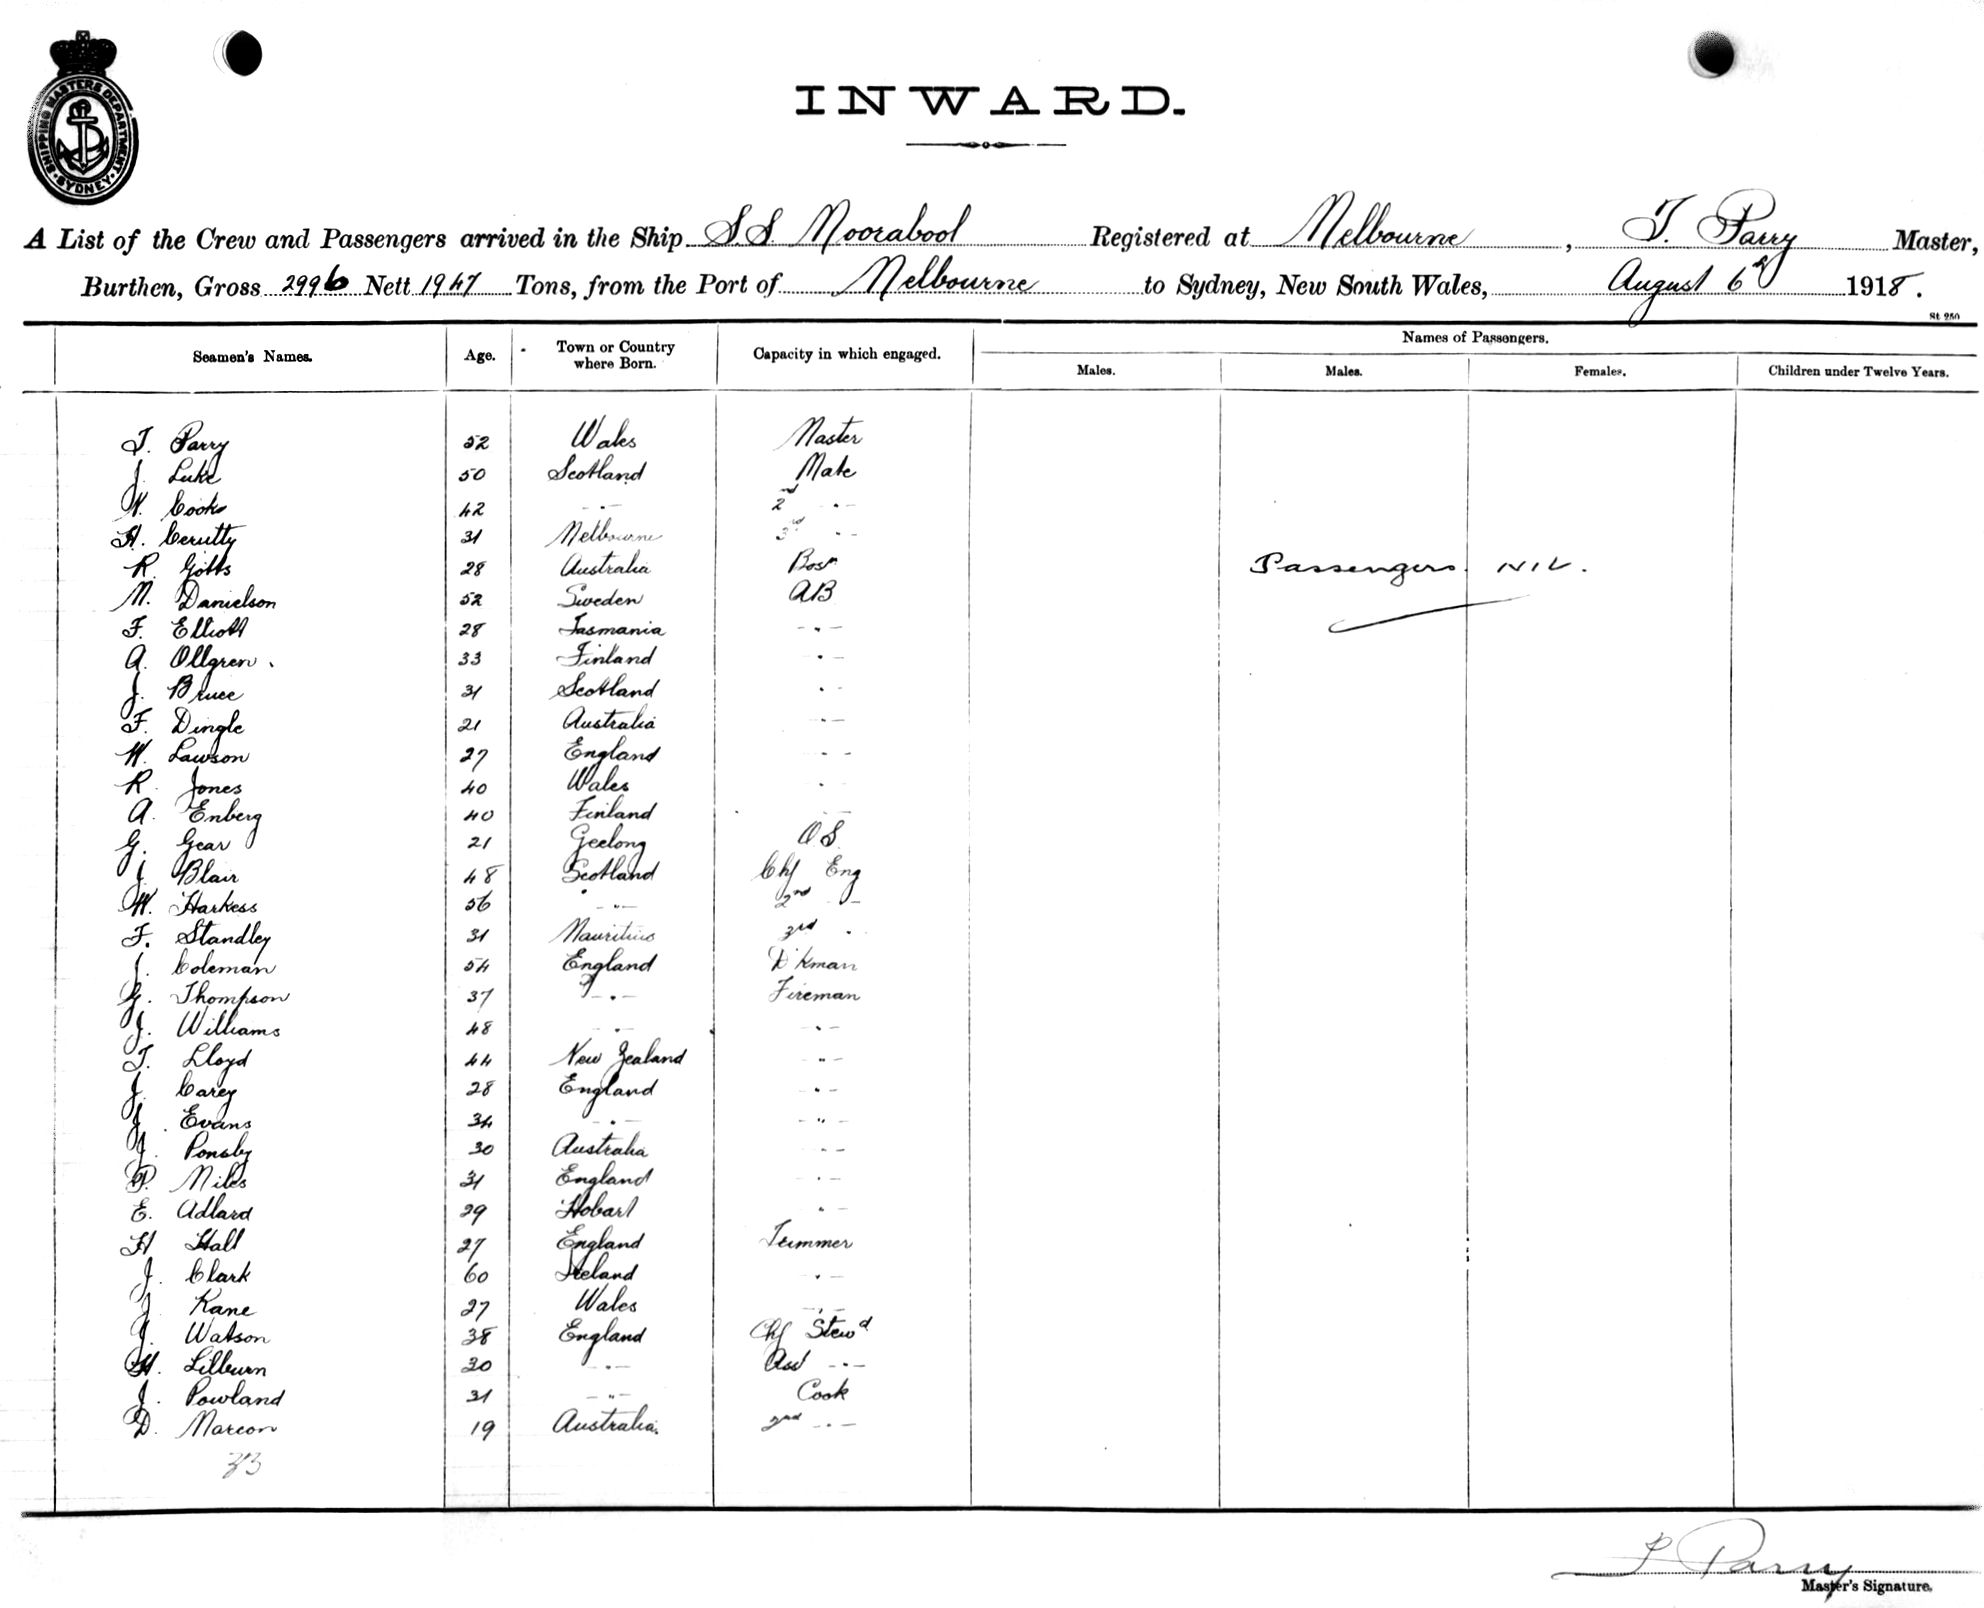 SHIPPING MASTERS DEPARTMENT. SYDNEY.
INWARD.
A List of the Crew and Passengers arrived in the Ship S.S. Moorabool Registered at Melbourne, T. Parry Master,
Burthen, Gross 2996 Nett 1947 Tons, from the Port of Melbourne to Sydney, New South Wales, August 6th 1918.
St 250
Seamen's Names. Age. Town or Country where Born. Capacity in which engaged. Names of Passengers.
Males. Males. Females. Children under Twelve Years.
T. Parry 52 Wales Master
J. Luke 50 Scotland Mate
W. Cook 42 -"- 2nd -"-
H. Cerutty 31 Melbourne 3rd -"-
R. Gotts 28 Australia Bosn Passengers NIL.
M. Danielson 52 Sweden AB
F. Elliott 28 Tasmania -"-
A. Ollgren. 33 Finland -"-
J. Bruce 31 Scotland -"-
F. Dingle 21 Australia -"-
W. Lawson 27 England -"-
R. Jones 40 Wales -"-
A. Enberg 40 Finland -"-
G. Gear 21 Geelong O.S.
J. Blair 48 Scotland Chf Eng
W. Harkess 56 -"- 2nd -"-
F. Standley 31 Mauritius 3rd "
J. Coleman 54 England D'kman
G. Thompson 37 -"- Fireman
J. Williams 48 -"- -"-
T. Lloyd 44 New Zealand -"-
J. Carey 28 England -"-
J. Evans 34 -"- -"-
J. Ponsby 30 Australia -"-
P. Niles 31 England -"-
E. Adlard 29 Hobart -"-
H Hall 27 England Trimmer
J. Clark 60 Ireland -"-
J. Kane 27 Wales -"-
J. Watson 38 England Chf Stewd
H. Lilburn 30 -"- Asst -"-
J. Powland 31 -"- Cook
D. Marcon 19 Australia. 2nd -"-
33
T Parry
Master's Signature.